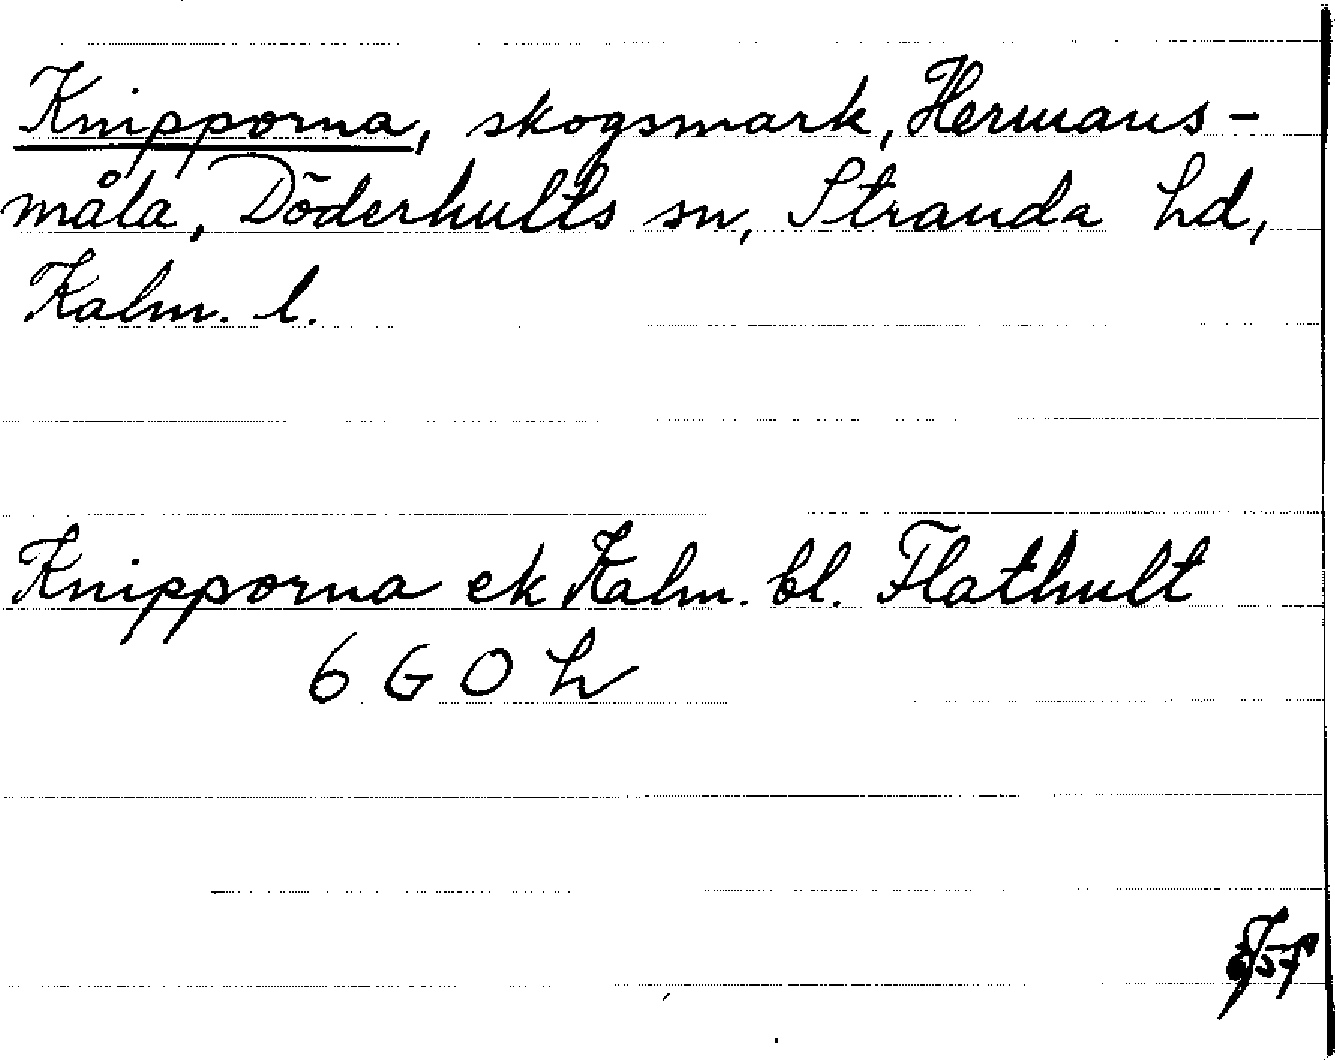 Knipporna, skogsmark, Hermans-
måla, Döderhults sn, Stranda hd,
Kalm. l.
Knipporna ek Kalm. bl. Flathult
6 G O h